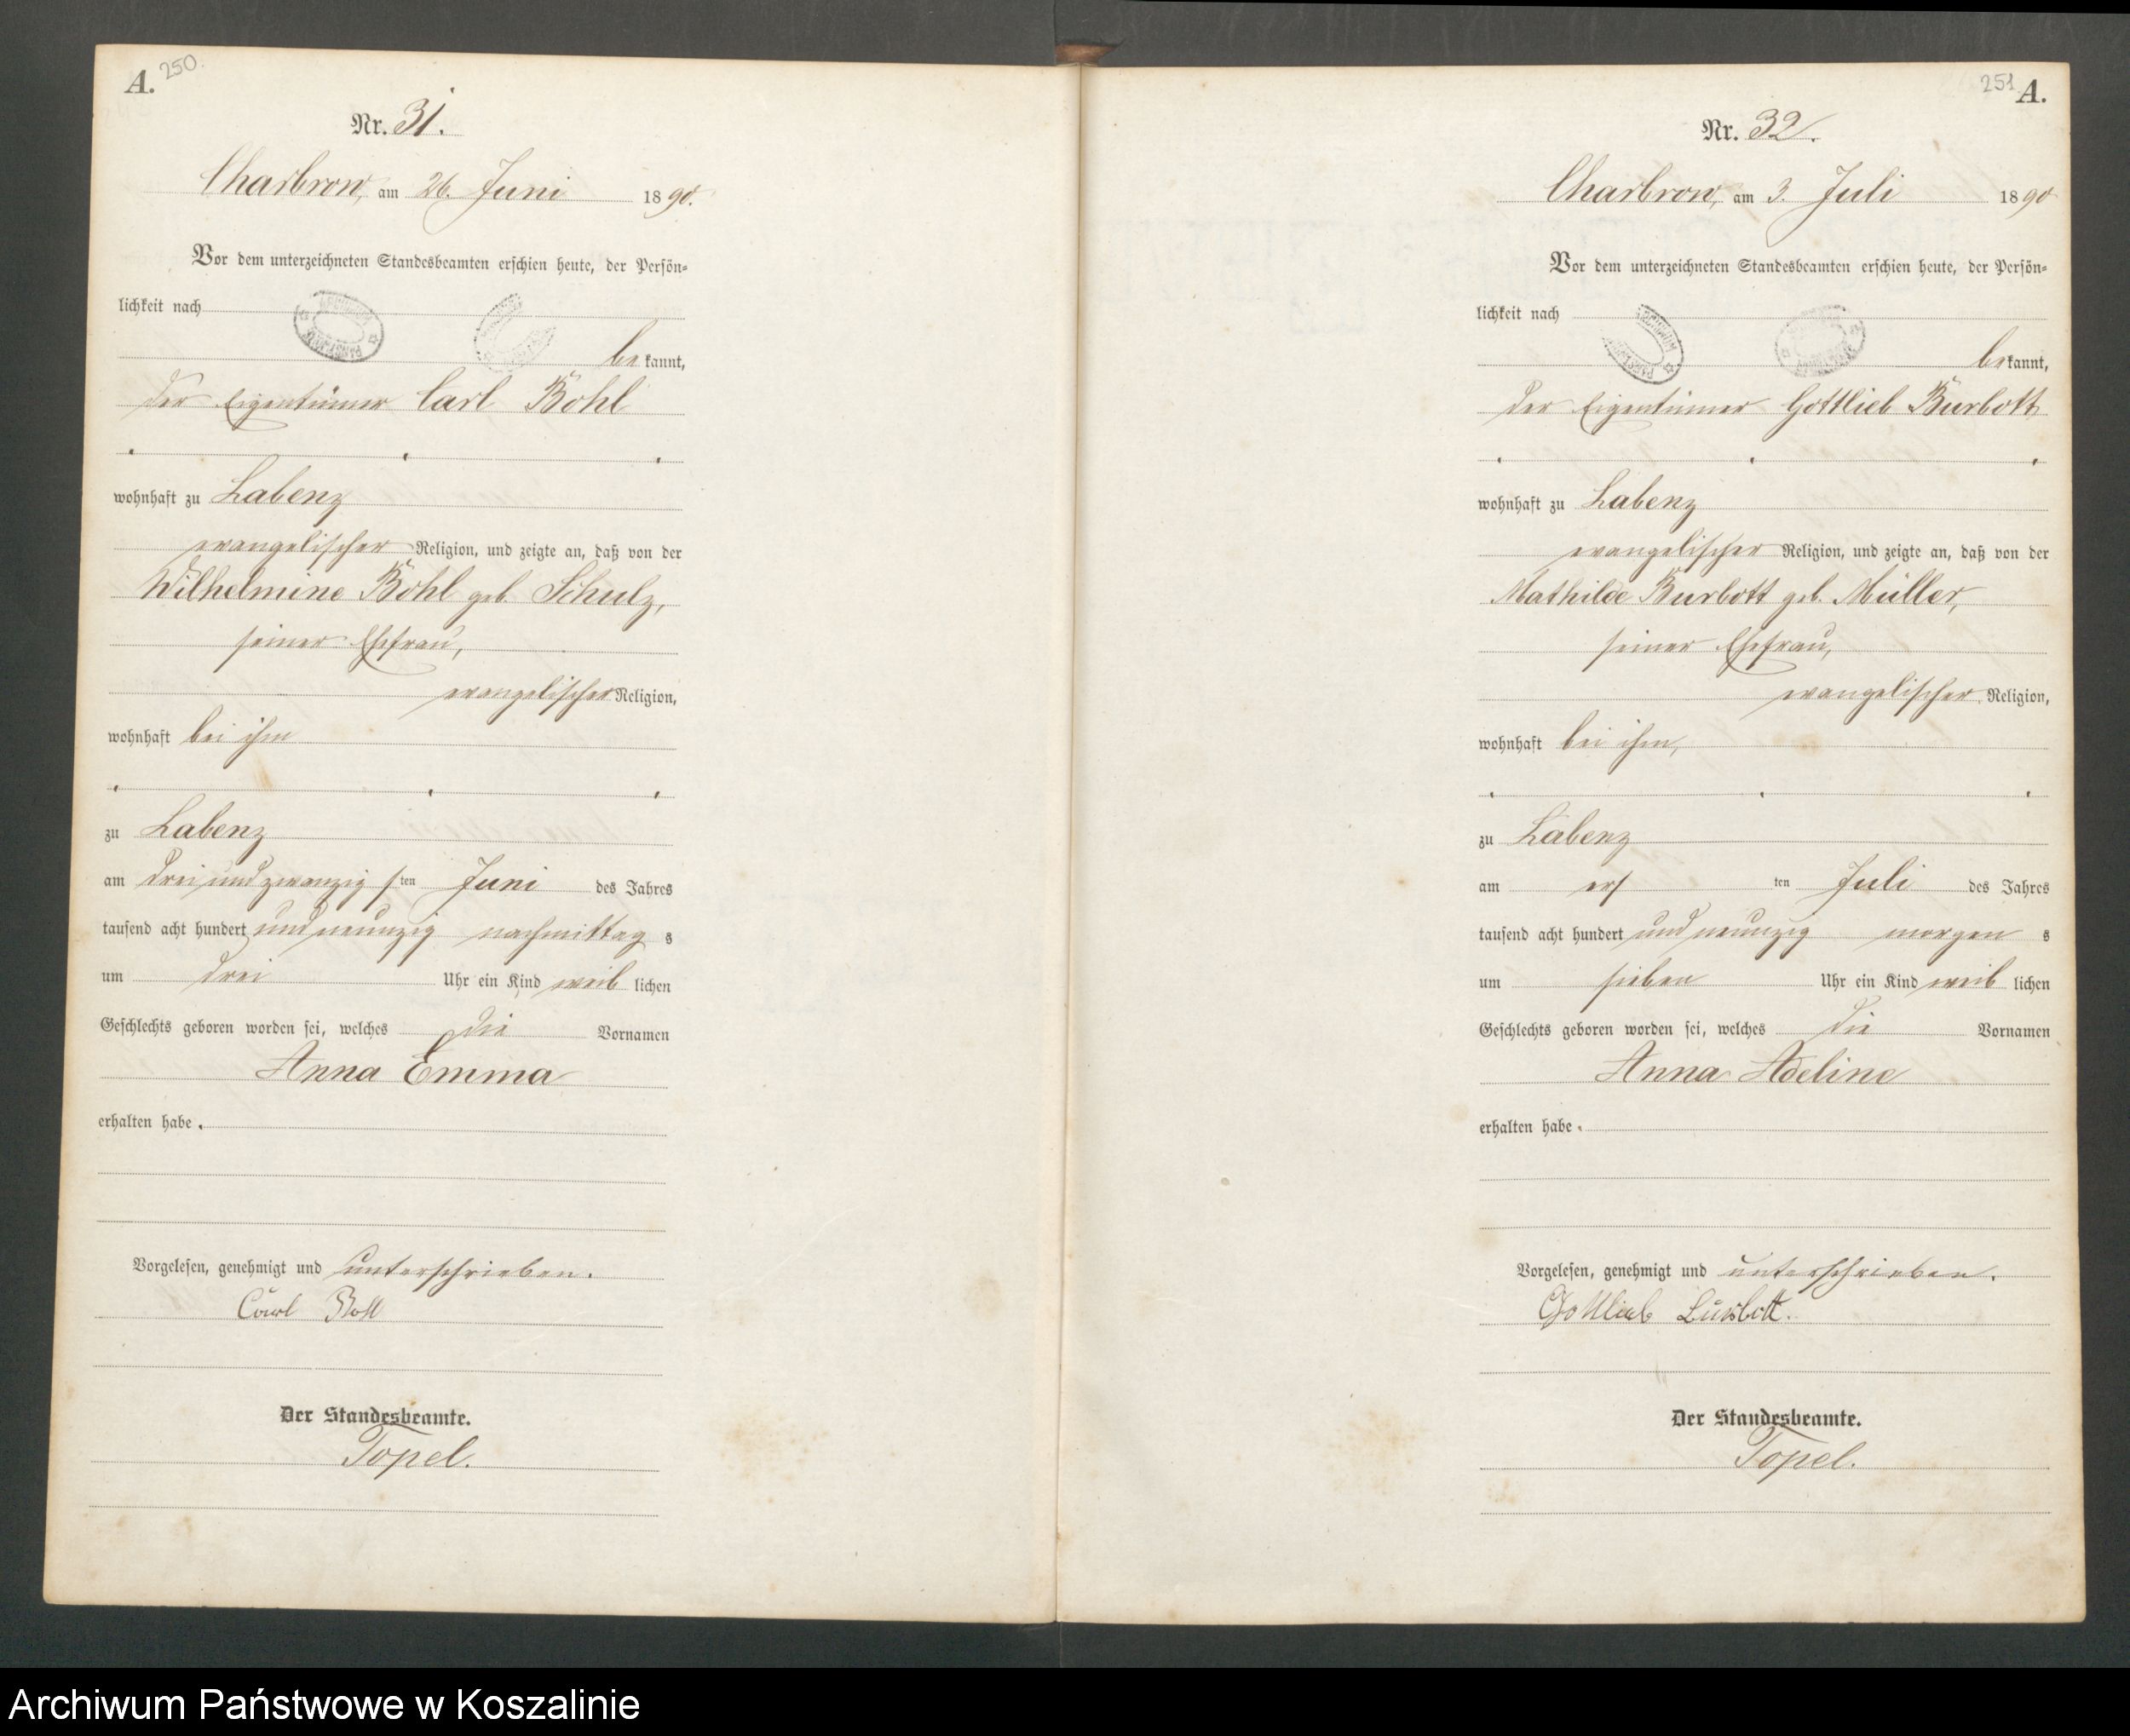 A. 250.
Nr. 31.
Charbrow, am 26. Juni 1890.
Vor dem unterzeichneten Standesbeamten erschien heute, der Persön-
lichkeit nach
bekannt,
der Eigentümer Carl Bohl
wohnhaft zu Labenz
evangelischer Religion, und zeigte an, daß von der
Wilhelmine Bohl geb. Schulz,
seiner Ehefrau,
evangelischer Religion,
wohnhaft bei ihm
zu Labenz
am drei und zwanzigsten Juni des Jahres
tausend acht hundert und neunzig nachmittags
um drei Uhr ein Kind weiblichen
Geschlechts geboren worden sei, welches die Vornamen
Anna Emma
erhalten habe.
Vorgelesen, genehmigt und unterschrieben.
Carl Boll
Der Standesbeamte.
Topel.
251 A.
Nr. 32.
Charbrow, am 3. Juli 1890
Vor dem unterzeichneten Standesbeamten erschien heute, der Persön-
lichkeit nach
bekannt,
der Eigentümer Gottlieb Burbott
wohnhaft zu Labenz
evangelischer Religion, und zeigte an, daß von der
Mathilde Burbott geb. Müller,
seiner Ehefrau,
evangelischer Religion,
wohnhaft bei ihm,
zu Labenz
am ersten Juli des Jahres
tausend acht hundert und neunzig morgens
um sieben Uhr ein Kind weiblichen
Geschlechts geboren worden sei, welches die Vornamen
Anna Adeline
erhalten habe.
Vorgelesen, genehmigt und unterschrieben.
Gottlieb Burbott.
Der Standesbeamte.
Topel.
Archiwum Państwowe w Koszalinie